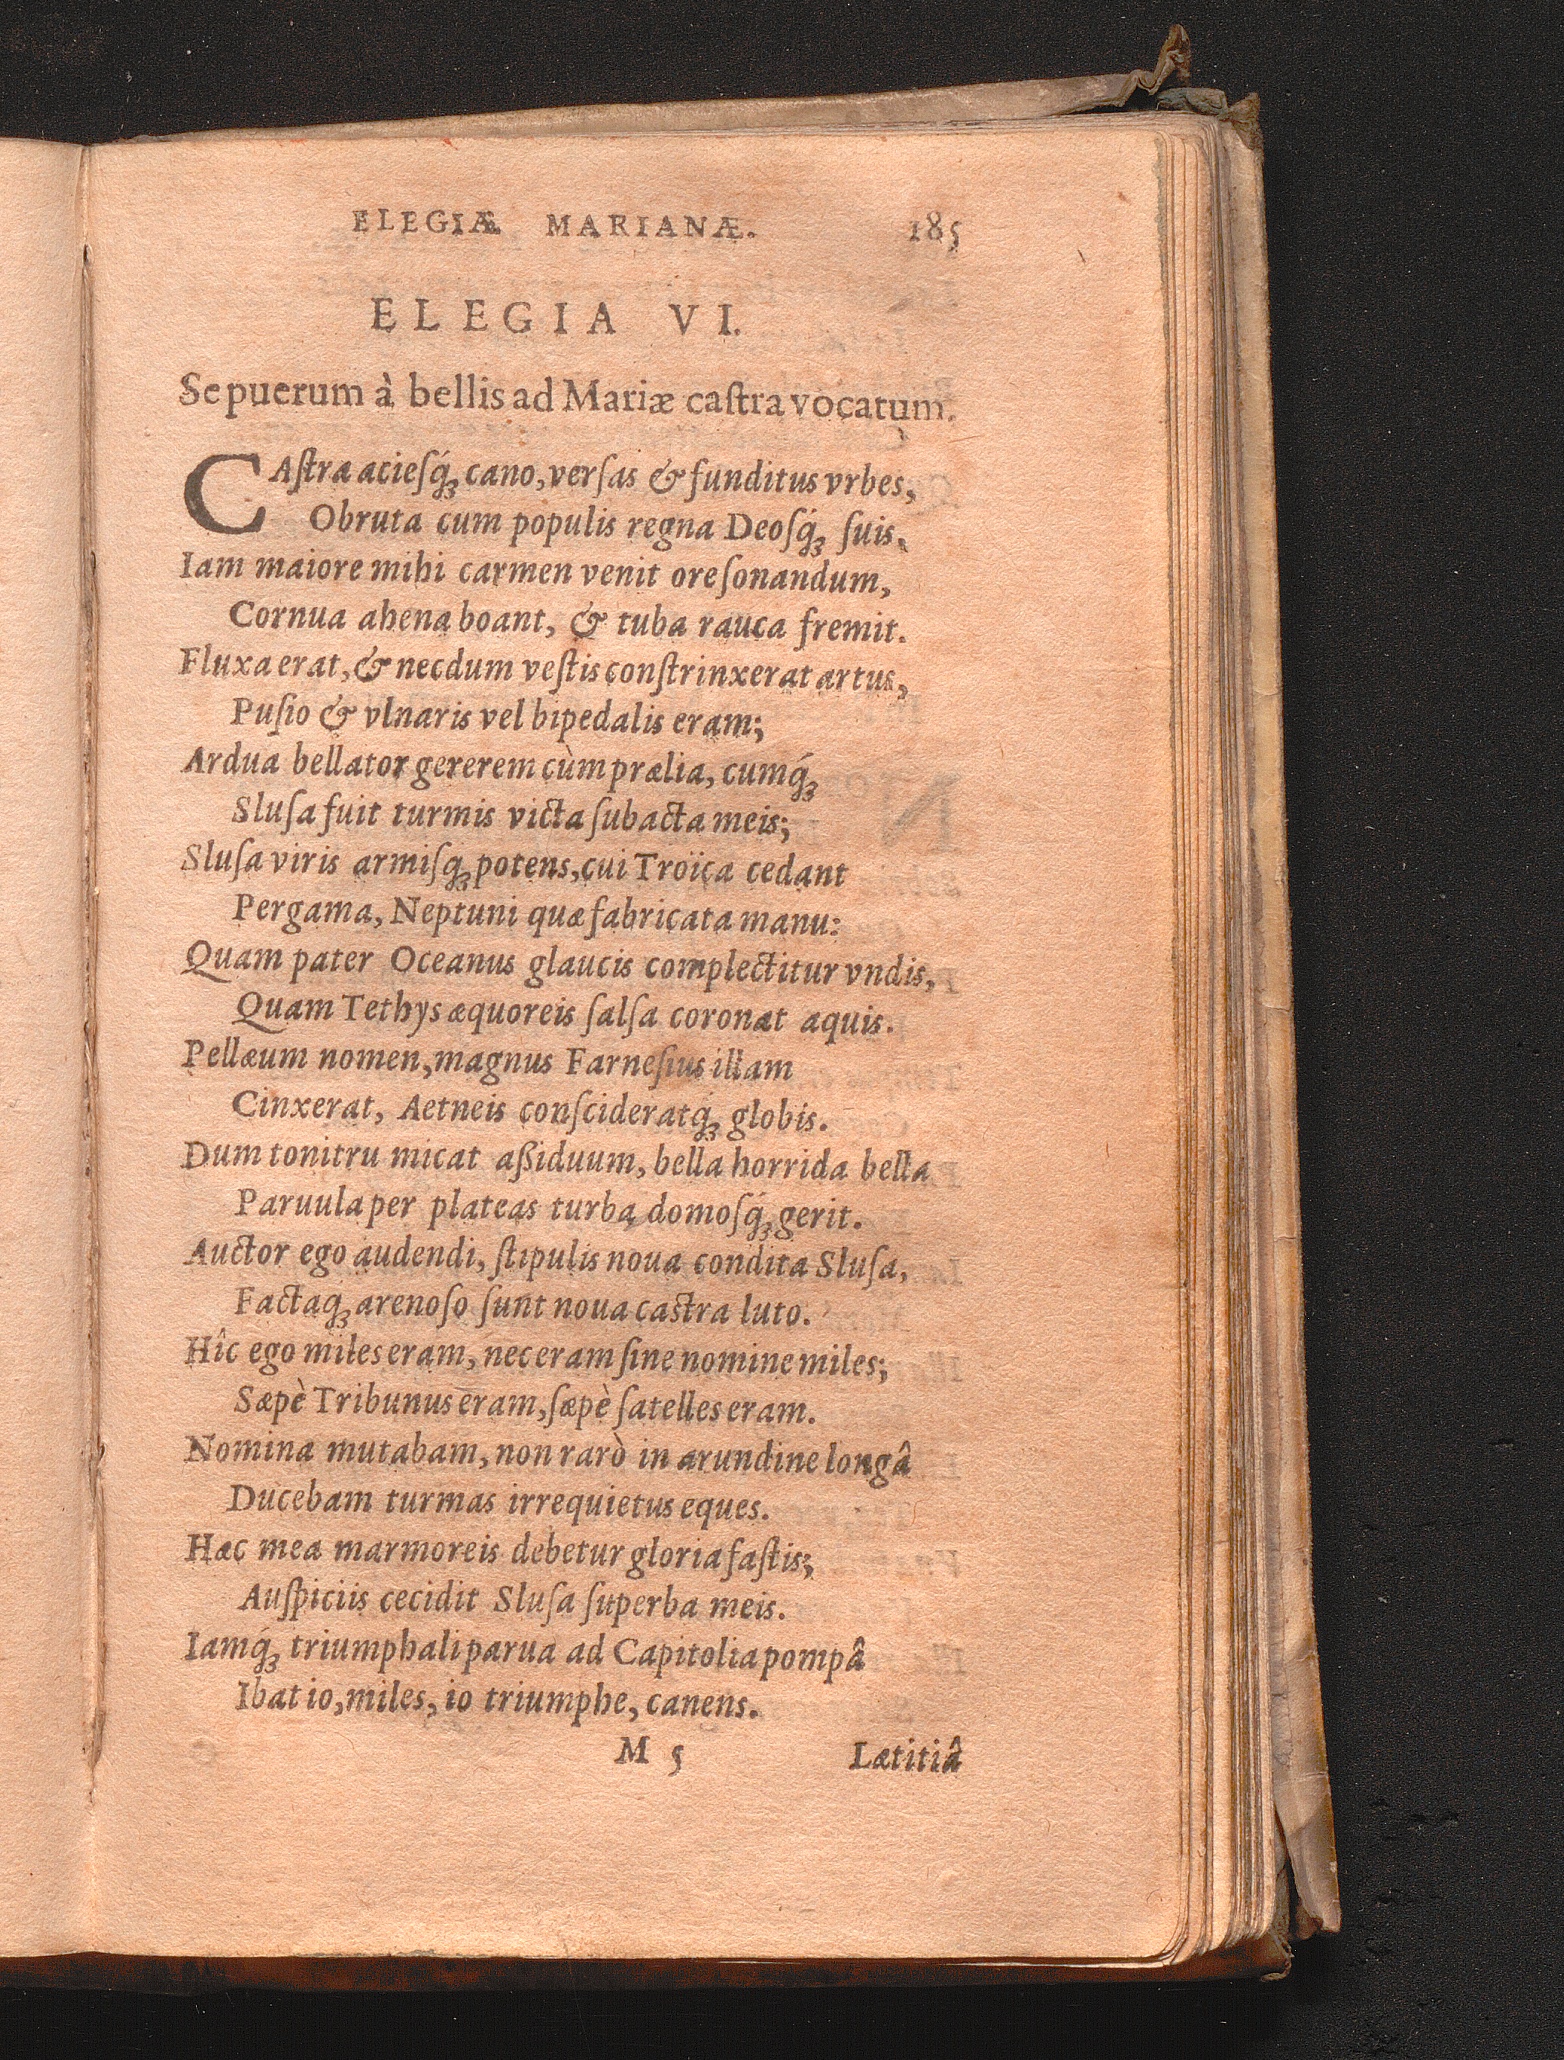 ELEGIÆ MARIANÆ. 185
ELEGIA VI.
Se puerum à bellis ad Mariæ caſtra vocatum.
CAſtra acieſq́; cano, verſas & funditus vrbes,
Obruta cum populis regna Deoſq́; ſuis.
Iam maiore mihi carmen venit ore ſonandum,
Cornua ahena boant, & tuba rauca fremit.
Fluxa erat, & necdum veſtis conſtrinxerat artus,
Puſio & vlnaris vel bipedalis eram;
Ardua bellator gererem cùm prælia, cumq́;
Sluſa fuit turmis victa ſubacta meis;
Sluſa viris armiſq; potens, cui Troïca cedant
Pergama, Neptuni quæ fabricata manu:
Quam pater Oceanus glaucis complectitur vndis,
Quam Tethys æquoreis ſalſa coronat aquis.
Pellæum nomen, magnus Farneſius illam
Cinxerat, Aetneis conſcideratq́; globis.
Dum tonitru micat aßiduum, bella horrida bella
Paruula per plateas turba, domoſq́; gerit.
Auctor ego audendi, ſtipulis noua condita Sluſa,
Factaq; arenoſo ſunt noua caſtra luto.
Hîc ego miles eram, nec eram ſine nomine miles;
Sæpè Tribunus eram, ſæpè ſatelles eram.
Nomina mutabam, non rarò in arundine longâ
Ducebam turmas irrequietus eques.
Hæc mea marmoreis debetur gloria faſtis;
Auſpiciis cecidit Sluſa ſuperba meis.
Iamq́; triumphali parua ad Capitolia pompâ
Ibat io, miles, io triumphe, canens.
M 5 Lætitiâ